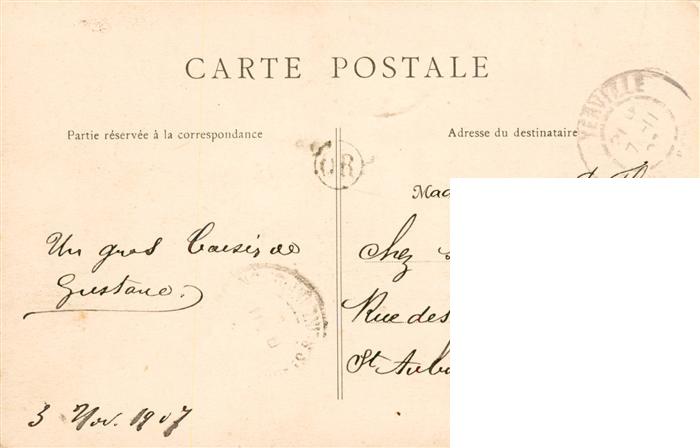 CARTE POSTALE
Partie réservée à la correspondance
Adresse du destinataire
OR
Un gros baiser de
Gustave.
3 Nov. 1907
Mad
Chez
Rue des
St Aub